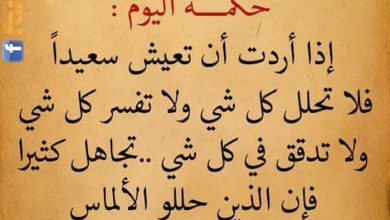 حكمـــة اليوم :
إذا أردت أن تعيش سعيداً
فلا تحلل كل شي ولا تفسر كل شي
ولا تدقق في كل شي ..تجاهل كثيرا
فإن الذين حللو الألماس